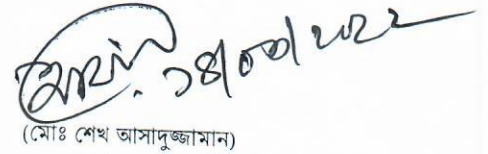 ১৪/০৩/২০২২
(মোঃ শেখ আসাদুজ্জামান)